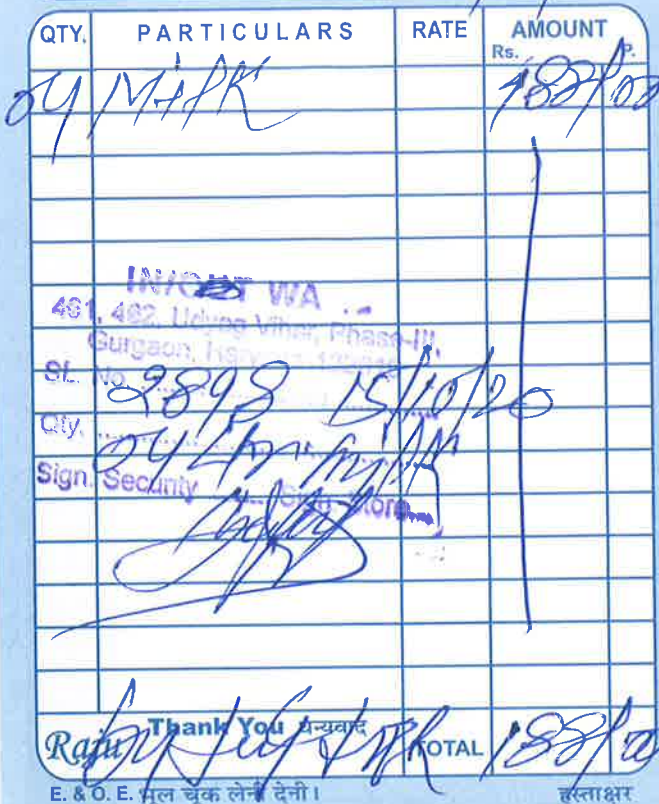 QTY. PARTICULARS RATE AMOUNT
Rs. P.
04 Milk 188/00
IN/OUT WA
461, 462, Udyog Vihar, Phase-III,
Gurgaon,
SL. No. 2898 15/10/20
Qty. 04 Ltr milk
Sign. Security Sign. Store
Thank You धन्यवाद
Raju TOTAL 188/00
E. & O. E. भूल चूक लेनी देनी। हस्ताक्षर